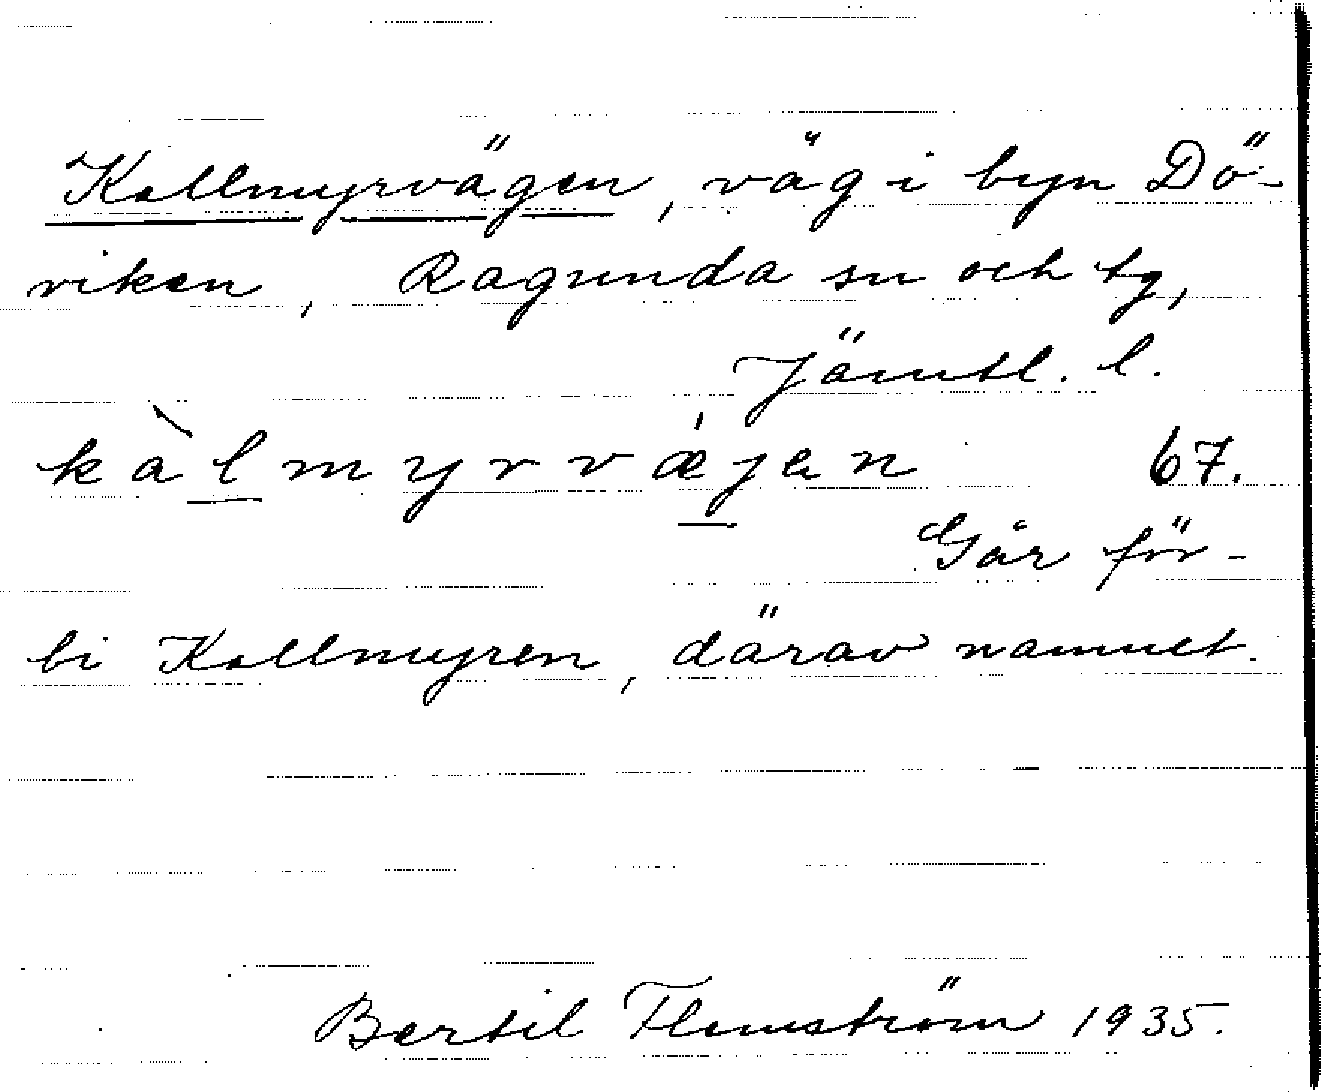 Kallmyrvägen, väg i byn Dö-
viken, Ragunda sn och tg,
Jämtl. l.
kàlmyrvæ̍jen 67.
Går för-
bi Kallmyren, därav namnet.
Bertil Flemström 1935.